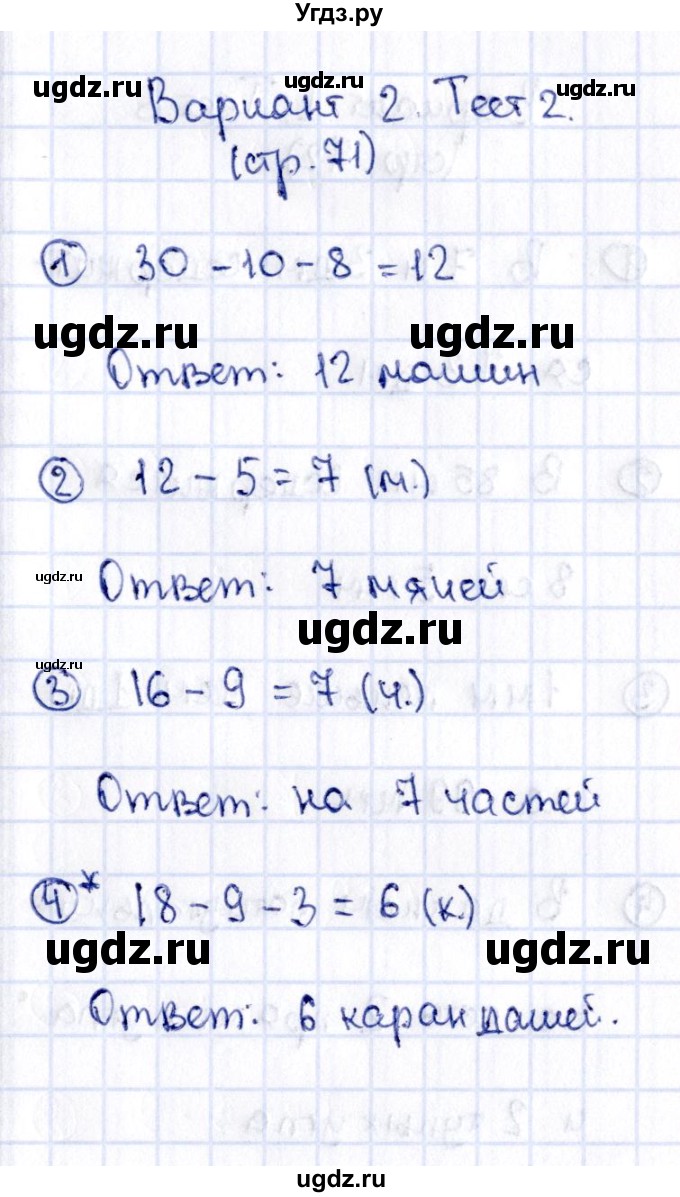 Угдз.ру
ugdz.ru ugdz.ru ugdz.ru
Вариант 2. Тест 2.
(стр. 71)
① 30 - 10 - 8 = 12
ugdz.ru ugdz.ru
Ответ: 12 машин
② 12 - 5 = 7 (м.)
ugdz.ru
Ответ: 7 мячей
ugdz.ru
ugdz.ru
③ 16 - 9 = 7 (ч.)
Ответ: на 7 частей
④* 18 - 9 - 3 = 6 (к.)
ugdz.ru ugdz.ru
Ответ: 6 карандашей.
ugdz.ru